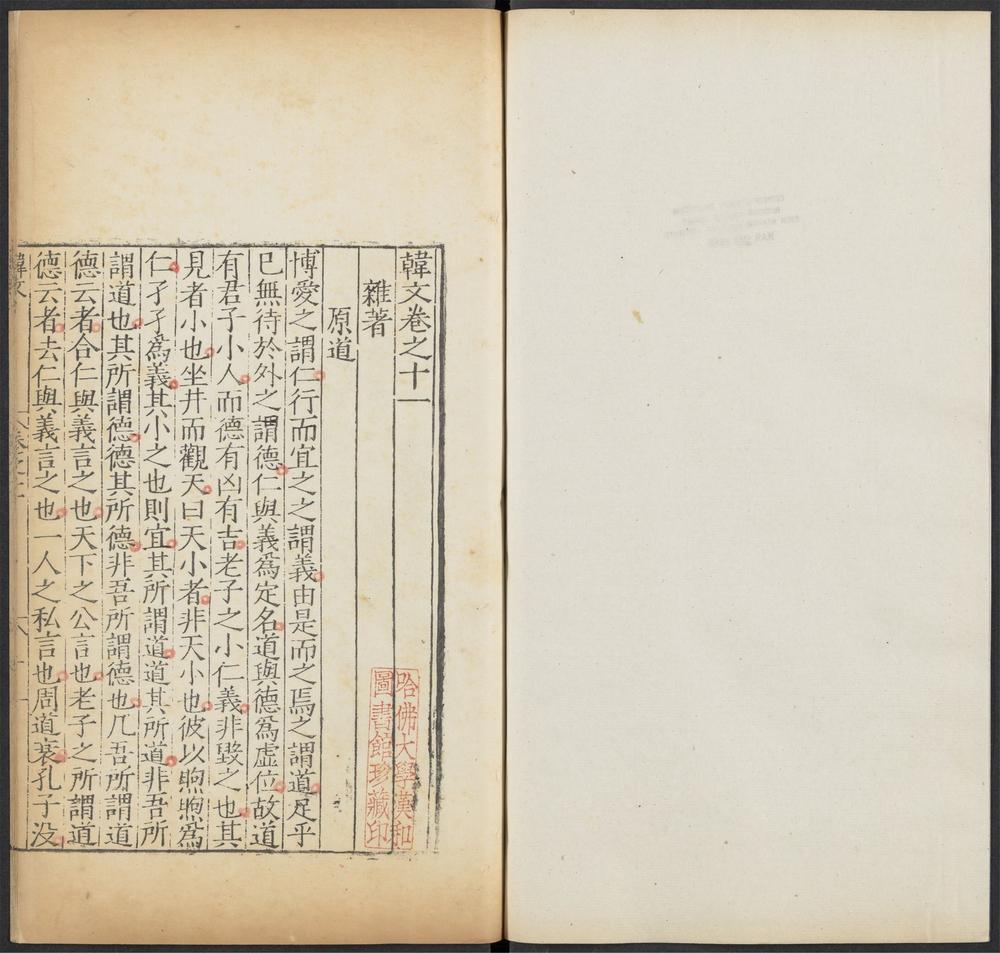 韓文卷之十一
雜著
原道
博愛之謂仁行而宜之之謂義由是而之焉之謂道足乎
已無待於外之謂德仁與義爲定名道與德爲虛位故道
有君子小人而德有凶有吉老子之小仁義非毀之也其
見者小也坐井而觀天曰天小者非天小也彼以煦煦爲
仁孑孑爲義其小之也則宜其所謂道道其所道非吾所
謂道也其所謂德德其所德非吾所謂德也凡吾所謂道
德云者合仁與義言之也天下之公言也老子之所謂道
德云者去仁與義言之也一人之私言也周道衰孔子没
哈佛大學漢和
圖書館珍藏印